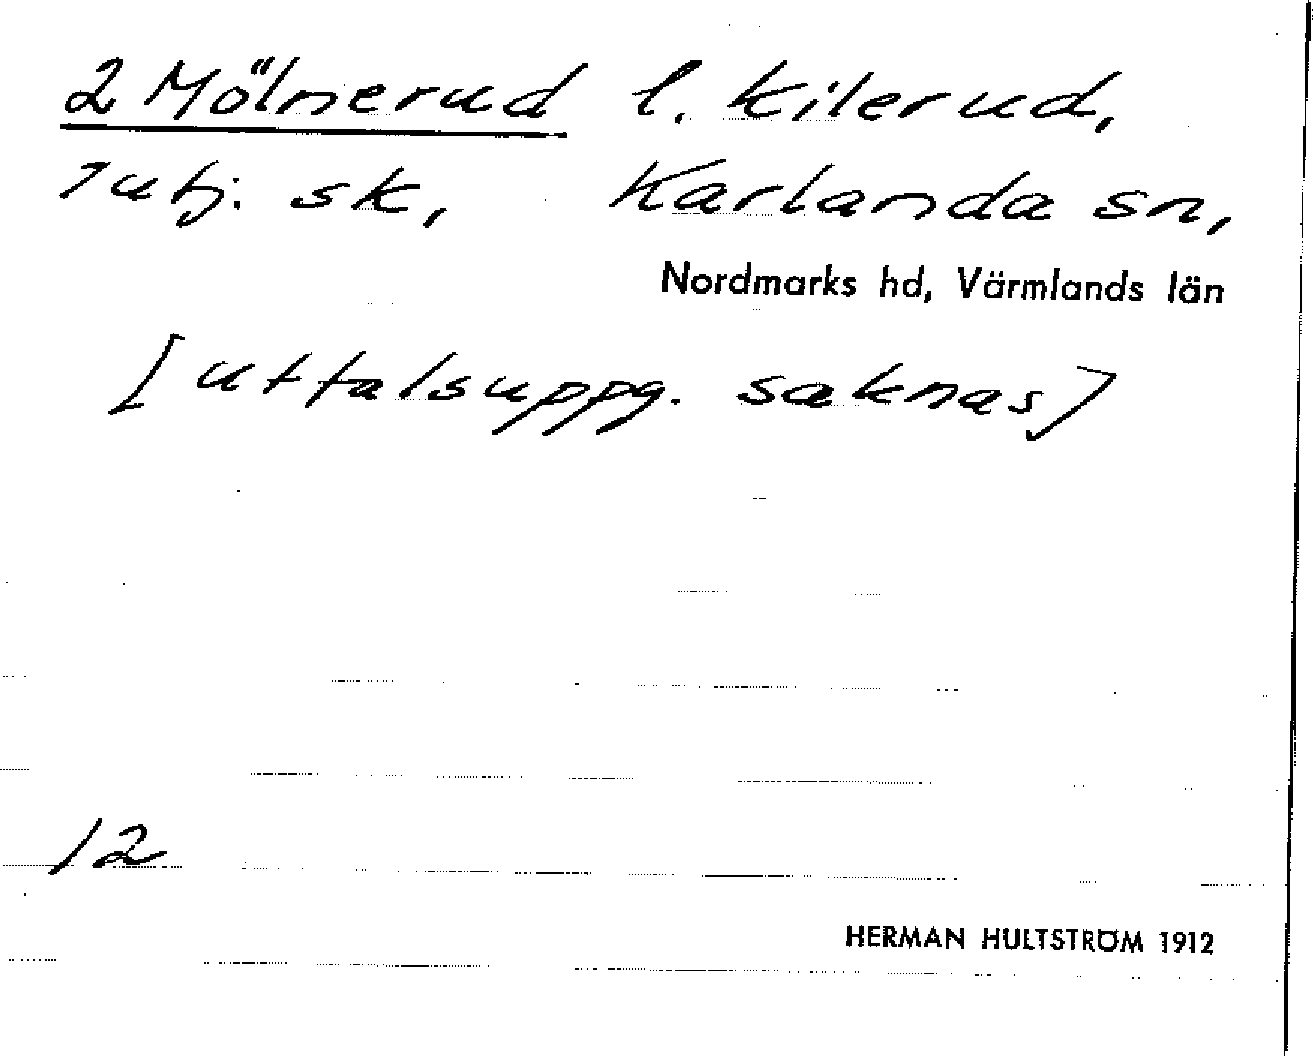 2 Mölnerud l. Kilerud,
sk, Karlanda sn,
Nordmarks hd, Värmlands län
[uttalsuppg. saknas]
12
HERMAN HULTSTRÖM 1912